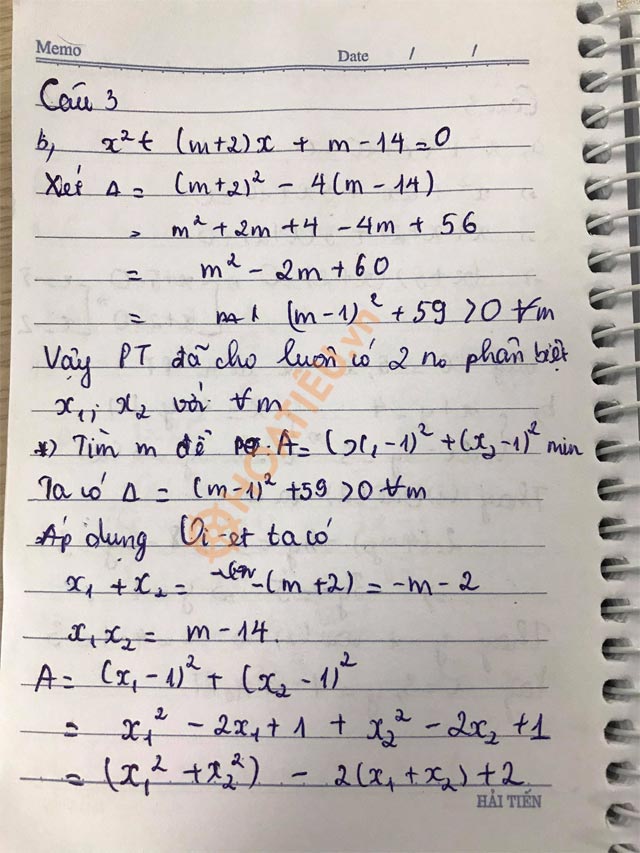 Memo
Date / /
Câu 3
b, x² + (m+2)x + m - 14 = 0
Xét Δ = (m+2)² - 4(m - 14)
= m² + 2m + 4 - 4m + 56
= m² - 2m + 60
= (m-1)² + 59 > 0 ∀m
Vậy PT đã cho luôn có 2 no phân biệt
x₁, x₂ với ∀m
*) Tìm m để A = (x₁-1)² + (x₂-1)² min
Ta có Δ = (m-1)² + 59 > 0 ∀m
Áp dụng Vi-et ta có
x₁ + x₂ = -(m+2) = -m-2
x₁x₂ = m-14.
A = (x₁-1)² + (x₂-1)²
= x₁² - 2x₁ + 1 + x₂² - 2x₂ + 1
= (x₁² + x₂²) - 2(x₁ + x₂) + 2
HẢI TIẾN
@HOATIEU.vn